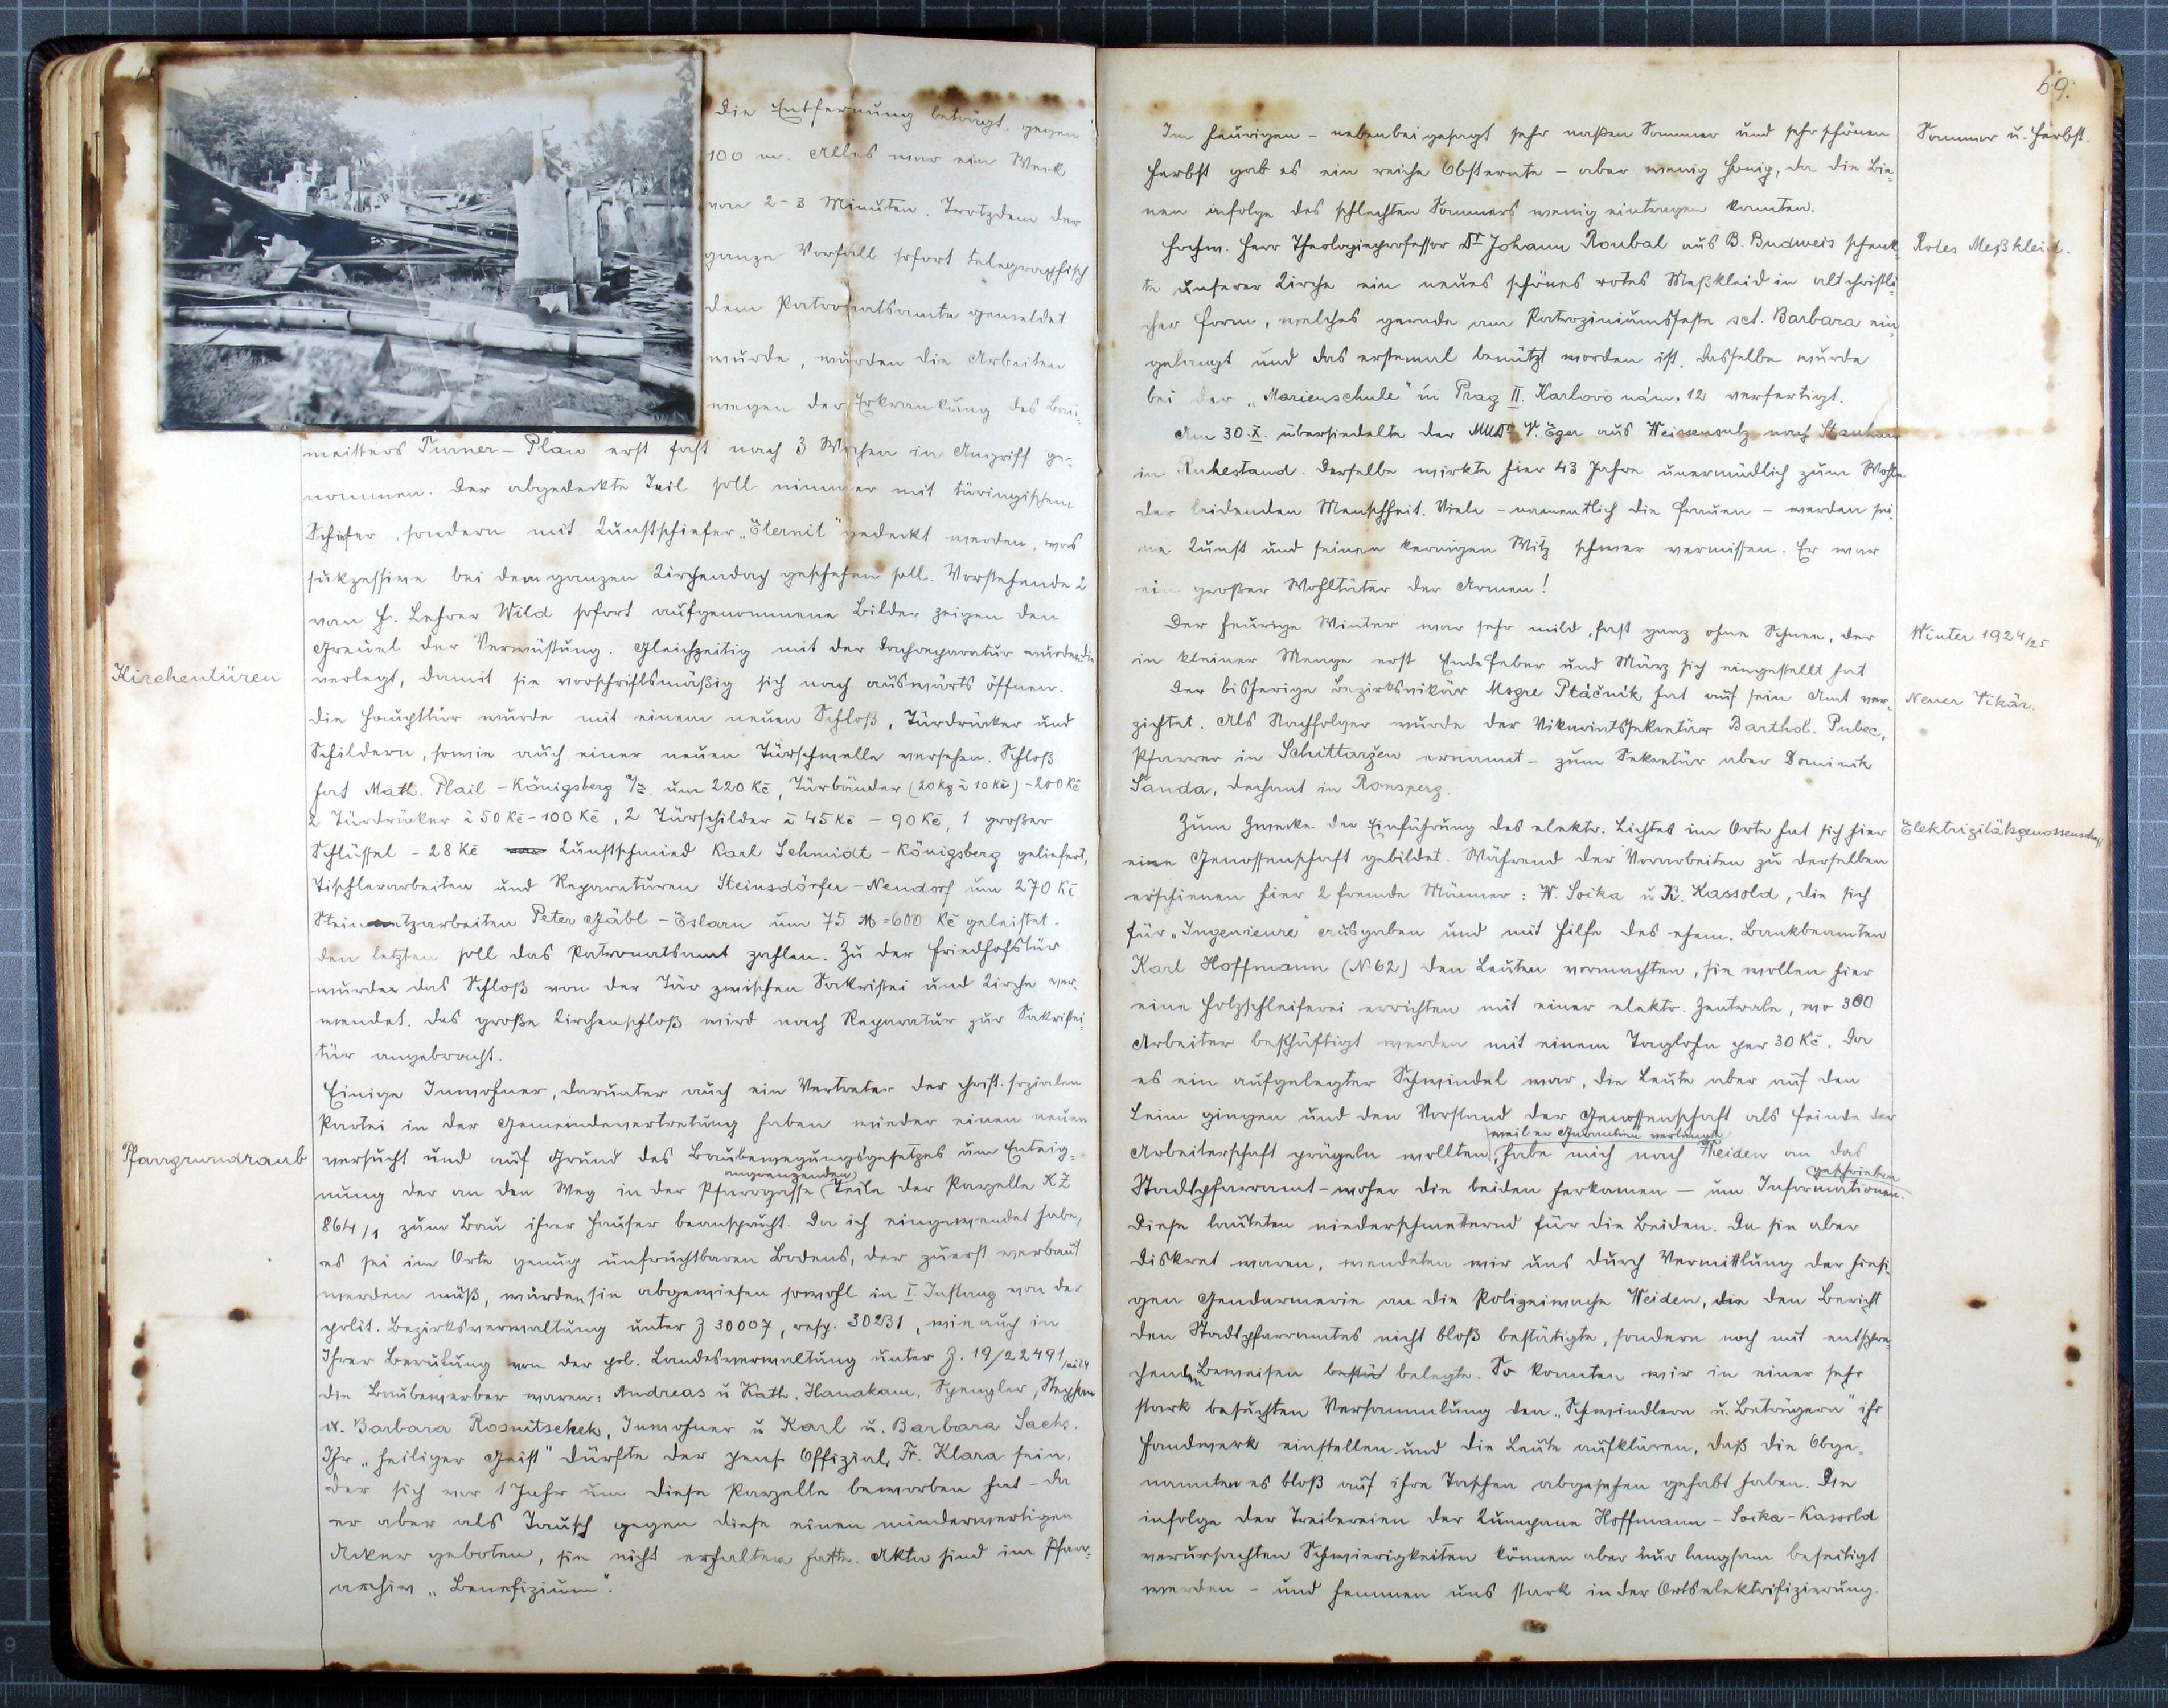 Die Entfernung beträgt gegen
100 m. Alles war ein Werk
von 2-3 Minuten. Trotzdem der
ganze Vorfall sofort telegraphisch
dem Patronatsamte gemeldet
wurde, wurden die Arbeiten
wegen der Erkrankung des Bau-
meisters Turner-Plan erst fast nach 3 Wochen in Angriff ge-
nommen. Der abgedeckte Teil soll nimmer mit türingischem
Schifer, sondern mit Kunstschiefer „Eternit" gedeckt werden, was
sukzessive bei dem ganzen Kirchendach geschehen soll. Vorstehende 2
vom H. Lehrer Wild sofort aufgenommene Bilder zeigen den
Greuel der Verwüstung. Gleichzeitig mit der Dachreparatur wurden die
Kirchentüren
verlegt, damit sie vorschriftsmäßig sich nach auswärts öffnen.
Die Haupttür wurde mit einem neuen Schloß, Türdrücker und
Schildern, sowie auch einer neuen Türschwelle versehen. Schloß
hat Math. Plail - Königsberg a/E. um 220 Kč, Türbänder (20 kg à 10 Kč) - 200 Kč
2 Türdrücker à 50 Kč - 100 Kč, 2 Türschilder à 45 Kč - 90 Kč, 1 großer
Schlüssel - 28 Kč Kunstschmied Karl Schmidt - Königsberg geliefert,
Tischlerarbeiten und Reparaturen Steinsdörfer - Neudorf um 270 Kč
Steinmetzarbeiten Peter Gäbl - Eslarn um 75 M = 600 Kč geleistet.
Den letzten soll das Patronatsamt zahlen. Zu der Friedhofstür
wurde das Schloß von der Tür zwischen Sakristei und Kirche ver-
wendet. Das große Kirchenschloß wird nach Reparatur zur Sakristei-
tür angebracht.
Einige Inwohner, darunter auch ein Vertreter der christ. sozialen
Partei in der Gemeindevertretung haben wieder einen neuen
Pfarrgrundraub
versucht und auf Grund des Baubewegungsgesetzes um Enteig-
nung der an den Weg in der Pfarrgasse angrenzenden Teile der Parzelle KZ
864/1 zum Bau ihrer Häuser beansprucht. Da ich eingewendet habe,
es sei im Orte genug unfruchtbaren Bodens, der zuerst verbaut
werden muß, wurden sie abgewiesen sowohl in I. Instanz von der
polit. Bezirksverwaltung unter Z 30007, resp. 30231, wie auch in
Ihrer Berufung von der pol. Landesverwaltung unter Z. 19/22491/
die Baubewerber waren: Andreas u Kath. Hanakam, Spengler, Stephan
u. Barbara Rosnitschek, Inwohner u Karl u. Barbara Sachs.
Ihr „heiliger Geist" dürfte der pens. Offizial Fr. Klara sein,
der sich vor 1 Jahr um diese Parzelle beworben hat - da
er aber als Tausch gegen diese einen minderwertigen
Acker geboten, sie nicht erhalten hatte. Akta sind im Pfarr-
archiv „Benefizium".
69.
Im heurigen - nebenbei gesagt sehr naßen Sommer und sehr schönen
Sommer u. Herbst.
Herbst gab es ein reiche Obsternte - aber wenig Honig, da die Bie-
nen infolge des schlechten Sommers wenig eintragen konnten.
Hochw. Herr Theologieprofessor Dr Johann Roubal aus B. Budweis schenk-
Rotes Meßkleid.
te unserer Kirche ein neues schönes rotes Meßkleid in altchristli-
cher Form, welches gerade am Patroziniumsfeste sct. Barbara ein-
gelangt und das erstemal benützt worden ist. Dasselbe wurde
bei der „Marienschule" in Prag II. Karlovo nám. 12 verfertigt.
Am 30.X. übersiedelte der MUDr V. Eger aus Weissensulz nach Stankau
in Ruhestand. Derselbe wirkte hier 43 Jahre unermüdlich zum Wohle
der leidenden Menschheit. Viele - namentlich die Frauen - werden sei-
ne Kunst und seinen kernigen Witz schwer vermissen. Er war
ein großer Wohltäter der Armen!
Der heurige Winter war sehr mild, fast ganz ohne Schnee, der
Winter 1924/25
in kleiner Menge erst Ende Feber und März sich eingestellt hat
Der bisherige Bezirksvikär Msgre Ptáčník hat auf sein Amt ver-
Neuer Vikär.
zichtet. Als Nachfolger wurde der Vikariatssekretär Barthol. Pubec,
Pfarrer in Schüttarzen ernannt - zum Sekretär aber Dominik
Šanda, Dechant in Ronsperg.
Zum Zwecke der Einführung des elektr. Lichtes im Orte hat sich hier
Elektrizitätsgenossenschaft
eine Genossenschaft gebildet. Während der Vorarbeiten zu derselben
erschienen hier 2 fremde Männer: W. Soika u K. Kassold, die sich
für „Ingenieure" ausgaben und mit Hilfe des ehem. Bankbeamten
Karl Hoffmann (N 62) den Leuten vormachten, sie wollen hier
eine Holzschleiferei errichten mit einer elektr. Zentrale, wo 300
Arbeiter beschäftigt werden mit einem Taglohn per 30 Kč. Da
es ein aufgelegter Schwindel war, die Leute aber auf den
Leim gingen und den Vorstand der Genossenschaft als Feinde der
Arbeiterschaft prügeln wollten, weil er Garantien verlangte, habe mich nach Weiden an das
Stadtpfarramt - woher die beiden herkamen - um Informationen geschrieben.
Diese lauteten niederschmetternd für die Beiden. Da sie aber
diskret waren, wendeten wir uns durch Vermittlung der hiesi-
gen Gendarmerie an die Polizeiwache Weiden, die den Bericht
den Stadtpfarramtes nicht bloß bestätigte, sondern noch mit entspre-
chenden Beweisen belegte. So konnten wir in einer sehr
stark besuchten Versammlung den „Schwindlern u. Betrügern" ihr
Handwerk einstellen und die Leute aufklären, daß die Obge-
nannten es bloß auf ihre Taschen abgesehen gehabt haben. Die
infolge der Treibereien der Kumpane Hoffmann - Soika - Kassold
verursachten Schwierigkeiten können aber nur langsam beseitigt
werden - und hemmen uns stark in der Ortselektrifizierung.
9